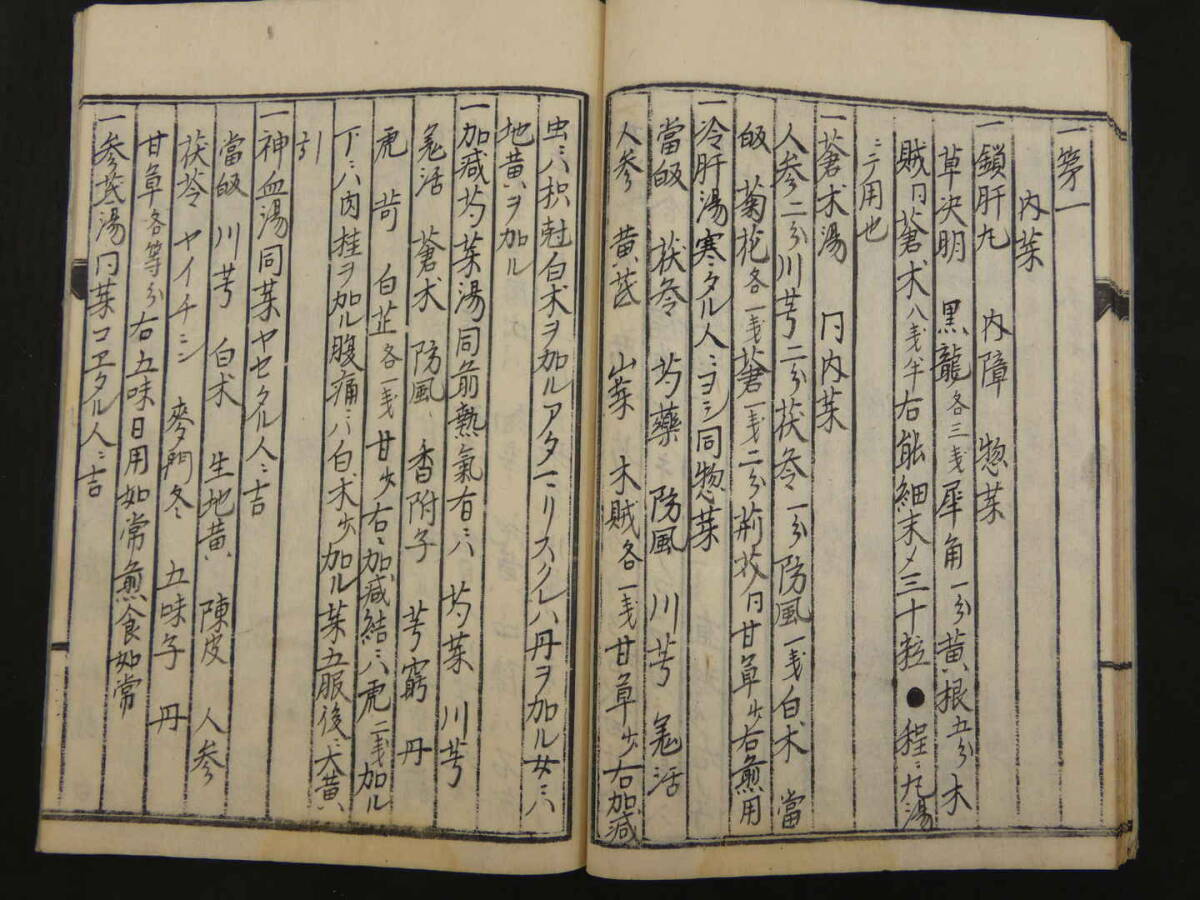 一 第一
内薬
一 鎖肝丸 内障 惣薬
草決明 黒龍各三戔犀角一分黄根五分木
賊同蒼朮八戔半右能細末〆三十粒●程ニ丸湯
ニテ用也
一 蒼朮湯 同内薬
人参二分川芎二分茯苓一分防風一戔白朮 當
皈 菊花各一戔蒼一戔二分荊芥同甘草少右煎用
一冷肝湯寒タル人ニヨシ同惣薬
當皈 茯苓 芍藥 防風 川芎 羗活
人参 黄茋 山薬 木賊各一戔甘草少右加減
虫ニハ枳尅白朮ヲ加ルアタニリスクレハ丹ヲ加ル女ニハ
地黄ヲ加ル
一加減芍薬湯同前熱氣有ニハ 芍薬 川芎
羗活 蒼朮 防風 香附子 芎窮 丹
虎 苛 白芷各一戔甘少右ニ加減結ニハ虎二戔加ル
下ニハ肉桂ヲ加ル腹痛ニハ白朮少加ル薬五服後ニ大黄
引
一神血湯同薬ヤセタル人ニ吉
當皈 川芎 白朮 生地黄 陳皮 人参
茯苓 ヤイチニシ 麥門冬 五味子 丹
甘草各等分右五味日用如常煎食如常
一参茋湯同薬コヱタル人ニ吉